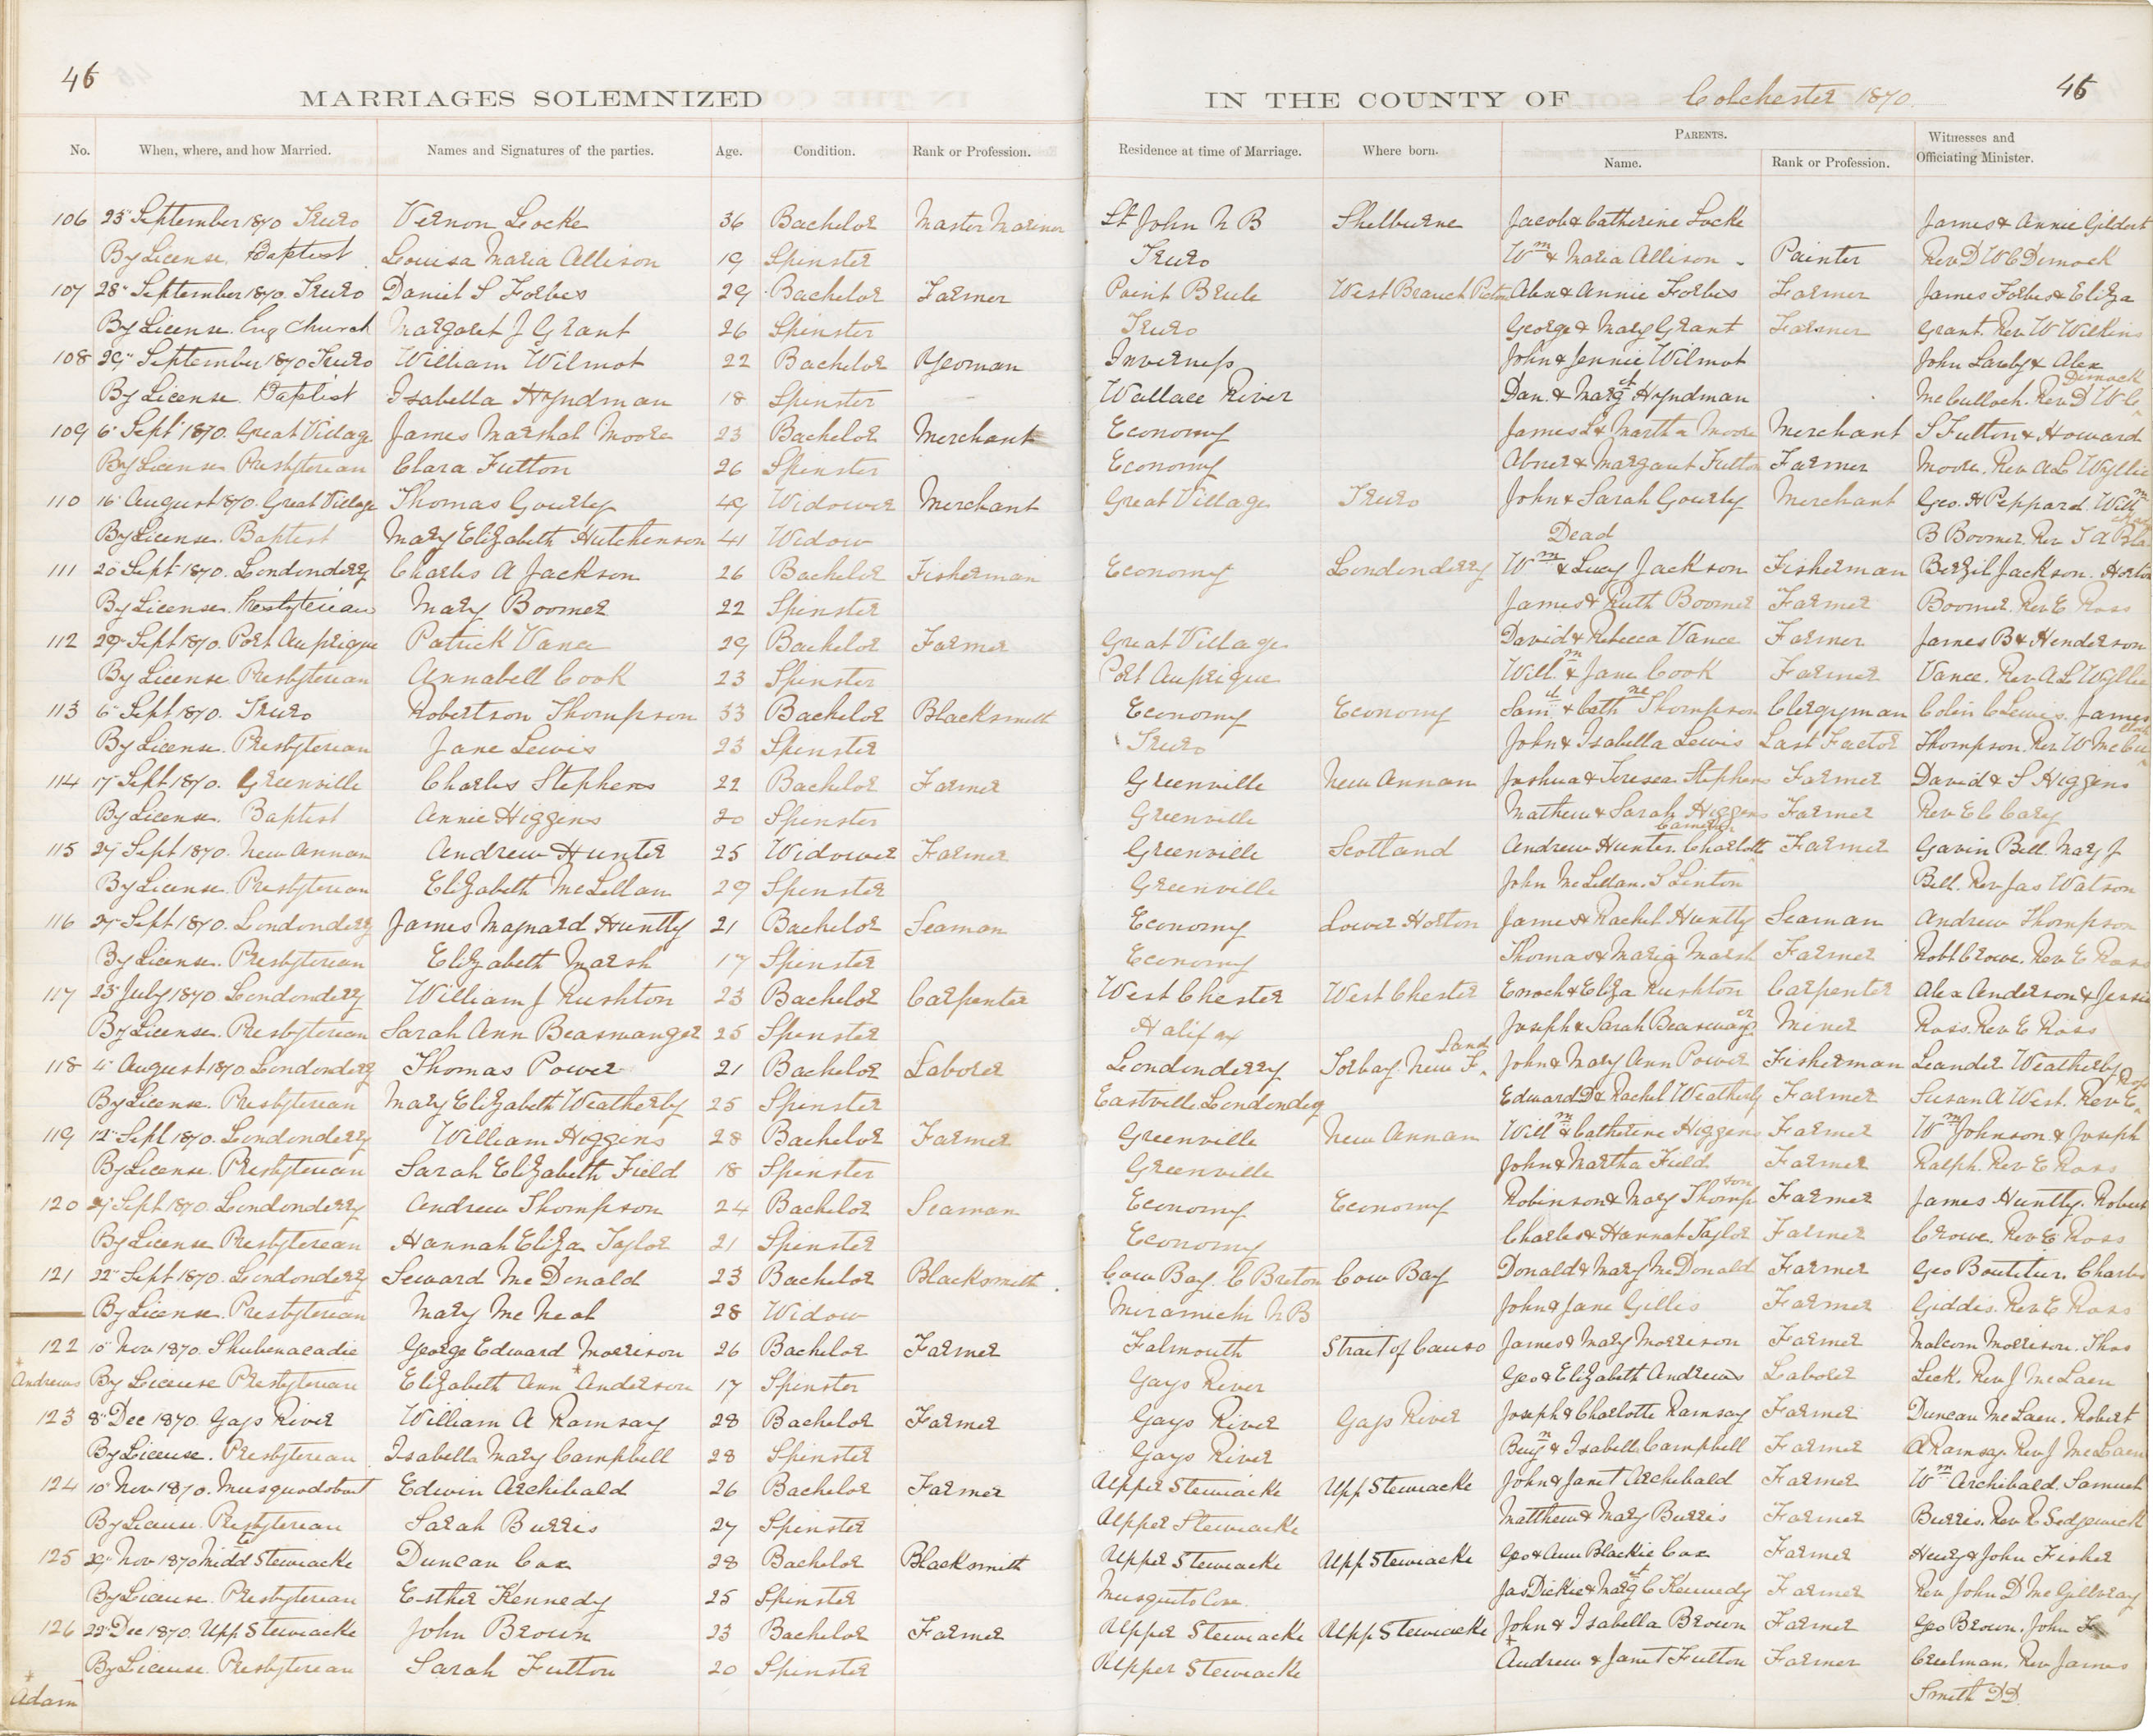 46
MARRIAGES SOLEMNIZED IN THE COUNTY OF Colchester 1870.
46
No. When, where, and how Married. Names and Signatures of the parties. Age. Condition. Rank or Profession. Residence at time of Marriage. Where born. PARENTS. Name. Rank or Profession. Witnesses and Officiating Minister.
106 23" September 1870 Truro Vernon Locke 36 Bachelor Master Mariner St John N B Shelburne Jacob & Catherine Locke James & Annie Gildert
By License. Baptist Louisa Maria Allison 19 Spinster Truro Wm & Maria Allison Painter Rev D W C Dimock
107 28" September 1870. Truro Daniel S Forbes 29 Bachelor Farmer Point Brule West Branch Pictou Alex & Annie Forbes Farmer James Forbes & Eliza
By License. Eng Church Margaret J Grant 26 Spinster Truro George & Mary Grant Farmer Grant. Rev W Wilkins
108 29" September 1870 Truro William Wilmot 22 Bachelor Yeoman Inverness John & Jennie Wilmot John & Alex
By License. Baptist Isabella Hyndman 18 Spinster Wallace River Dan. & Margt Hyndman McCulloch. Rev D W C Dimock
109 6" Sept 1870. Great Village James Marshal Moore 23 Bachelor Merchant Economy James L & Martha Moore Merchant S Fulton & Howard
By License Presbyterian Clara Fulton 26 Spinster Economy Abner & Margaret Fulton Farmer Moore. Rev A L Wyllie
110 16" August 1870. Great Village Thomas Gourly 49 Widower Merchant Great Village Truro John & Sarah Gourly Merchant Geo. H Peppard. Willm
By License. Baptist Mary Elizabeth Hutchenson 41 Widow Dead B Boomer. Rev T A
111 20" Sept 1870. Londonderry Charles A Jackson 26 Bachelor Fisherman Economy Londonderry Wm & Lucy Jackson Fisherman Berzil Jackson. Horton
By License. Presbyterian Mary Boomer 22 Spinster James & Ruth Boomer Farmer Boomer. Rev E Ross
112 29" Sept 1870. Port Auprique Patrick Vance 29 Bachelor Farmer Great Village David & Rebecca Vance Farmer James B & Henderson
By License Presbyterian Annabell Cook 23 Spinster Port Auprique Willm & Jane Cook Farmer Vance. Rev A L Wyllie
113 6" Sept 1870. Truro Robertson Thompson 33 Bachelor Blacksmith Economy Economy Saml & Cathne Thompson Clergyman Colin C Lewis. James
By License. Presbyterian Jane Lewis 23 Spinster Truro John & Isabella Lewis Last Factor Thompson. Rev W McCulloch
114 17" Sept 1870. Greenville Charles Stephens 22 Bachelor Farmer Greenville New Annan Joshua & Teresea Stephens Farmer David & S Higgins
By License. Baptist Annie Higgens 20 Spinster Greenville Mathew & Sarah Higgens Farmer Rev E C Cary
115 27" Sept 1870. New Annan Andrew Hunter 25 Widower Farmer Greenville Scotland Andrew Hunter. Charlott Cameron Farmer Gavin Bell. Mary J
By License. Presbyterian Elizabeth McLellan 29 Spinster Greenville John McLellan. S Linton Bell. Rev Jas Watson
116 27" Sept 1870. Londonderry James Maynard Huntly 21 Bachelor Seaman Economy Lower Horton James & Rachel Huntly Seaman Andrew Thompson
By License. Presbyterian Elizabeth Marsh 17 Spinster Economy Thomas & Maria Marsh Farmer Robt Crowe. Rev E Ross
117 23" July 1870. Londonderry William J Rushton 23 Bachelor Carpenter West Chester West Chester Enoch & Eliza Rushton Carpenter Alex Anderson & Jessie
By License. Presbyterian Sarah Ann Beasmanger 25 Spinster Halifax Joseph & Sarah Beasmanger Miner Ross. Rev E Ross
118 4" August 1870. Londonderry Thomas Power 21 Bachelor Laborer Londonderry Torbay. New F.Land John & Mary Ann Power Fisherman Leander Weatherby
By License. Presbyterian Mary Elizabeth Weatherby 25 Spinster Eastville Londonderry Edward D & Rachel Weatherby Farmer Susan A West. Rev E. Ross
119 12" Sept 1870. Londonderry William Higgins 28 Bachelor Farmer Greenville New Annan Willm & Catherine Higgens Farmer Wm Johnson & Joseph
By License. Presbyterian Sarah Elizabeth Field 18 Spinster Greenville John & Martha Field Farmer Ralph. Rev E Ross
120 27 Sept 1870. Londonderry Andrew Thompson 24 Bachelor Seaman Economy Economy Robinson & Mary Thompson Farmer James Huntly. Robert
By License Presbyterian Hannah Eliza Taylor 21 Spinster Economy Charles & Hannah Taylor Farmer Crowe. Rev E Ross
121 22" Sept 1870. Londonderry Seward McDonald 23 Bachelor Blacksmith. Cow Bay. C Breton Cow Bay Donald & Mary McDonald Farmer Geo Boutitier. Charles
By License. Presbyterian Mary McNeal 28 Widow Miramichi N B John & Jane Gillis Farmer Giddis. Rev E Ross
122 10" Nov 1870. Shubenacadie George Edward Morrison 26 Bachelor Farmer Falmouth Strait of Canso James & Mary Morrison Farmer Malcom Morrison. Thos
* Andrews By License Presbyterian Elizabeth Ann * Anderson 17 Spinster Gays River Geo & Elizabeth Andrews Laborer Leck. Rev J McLaen
123 8" Dec 1870. Gays River William A Ramsay 28 Bachelor Farmer Gays River Gays River Joseph & Charlotte Ramsay Farmer Duncan McLaen. Robert
By License. Presbyterian Isabella Mary Campbell 28 Spinster Gays River Benjn & Isabella Campbell Farmer A Ramsay. Rev J McLaen
124 10" Nov 1870. Musquodobort Edwin Archibald 26 Bachelor Farmer Upper Stewiacke Upp Stewiacke John & Janet Archibald Farmer Wm Archibald. Samuel
By License. Presbyterian Sarah Burris 27 Spinster Upper Stewiacke Matthew & Mary Burris Farmer Burris. Rev R Sedgewick
125 29" Nov 1870 Midd Stewiacke Duncan Cox 28 Bachelor Blacksmith Upper Stewiacke Upp Stewiacke Geo & Ann Blackie Cox Farmer Henry & John Fisher
By License. Presbyterian Esther Kennedy 25 Spinster Musquito Cove. Jas Dickie & Margt C Kennedy Farmer Rev John D McGillvray
126 22" Dec 1870. Upp Stewiacke John Brown 23 Bachelor Farmer Upper Stewiacke Upp Stewiacke John & Isabella Brown Farmer Geo Brown. John
By License. Presbyterian Sarah Fulton 20 Spinster Upper Stewiacke * Andrew & Janet Fulton Farmer Creelman. Rev James
* Adam Smith D D.